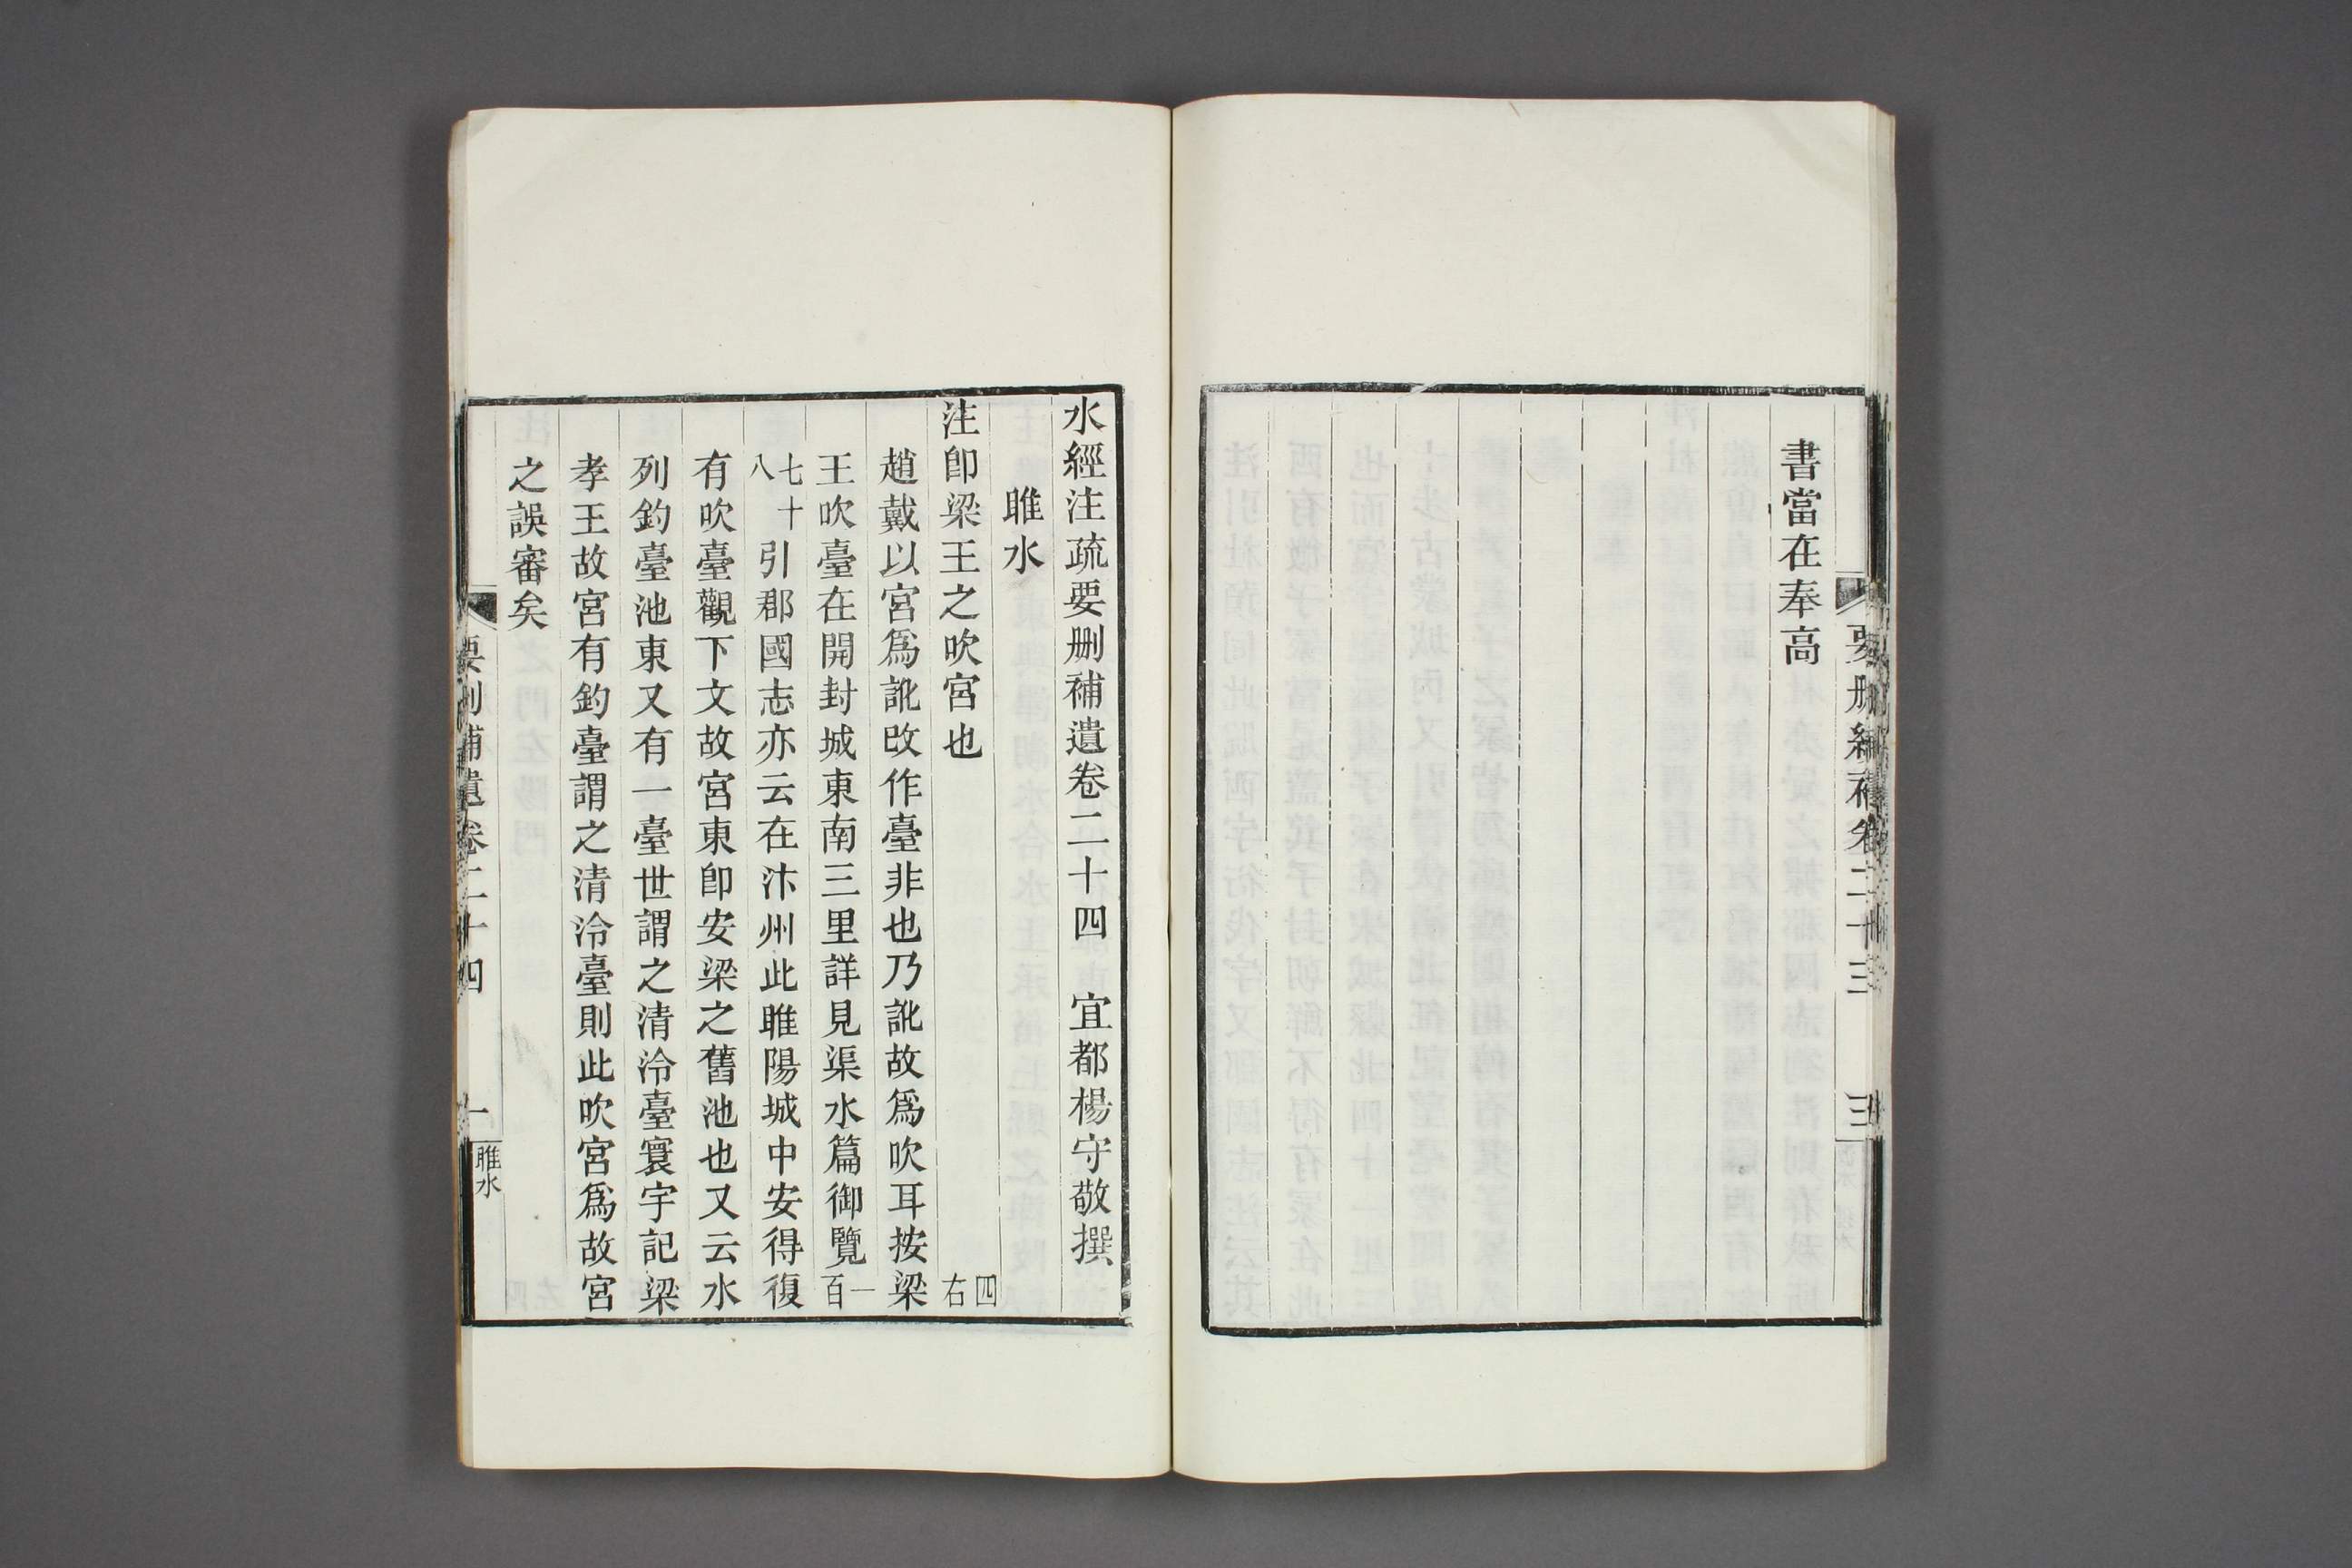 書當在奉高
要刪續補卷二十三
三
水經注疏要刪補遺卷二十四　宜都楊守敬撰
睢水
注卽梁王之吹宮也　四右
趙戴以宮爲訛改作臺非也乃訛故爲吹耳按梁
王吹臺在開封城東南三里詳見渠水篇御覽一百
七十八引郡國志亦云在汴州此睢陽城中安得復
有吹臺觀下文故宮東卽安梁之舊池也又云水
列釣臺池東又有一臺世謂之清泠臺寰宇記梁
孝王故宮有釣臺謂之清泠臺則此吹宮爲故宮
之誤審矣
要刪補遺卷二十四
一
睢水